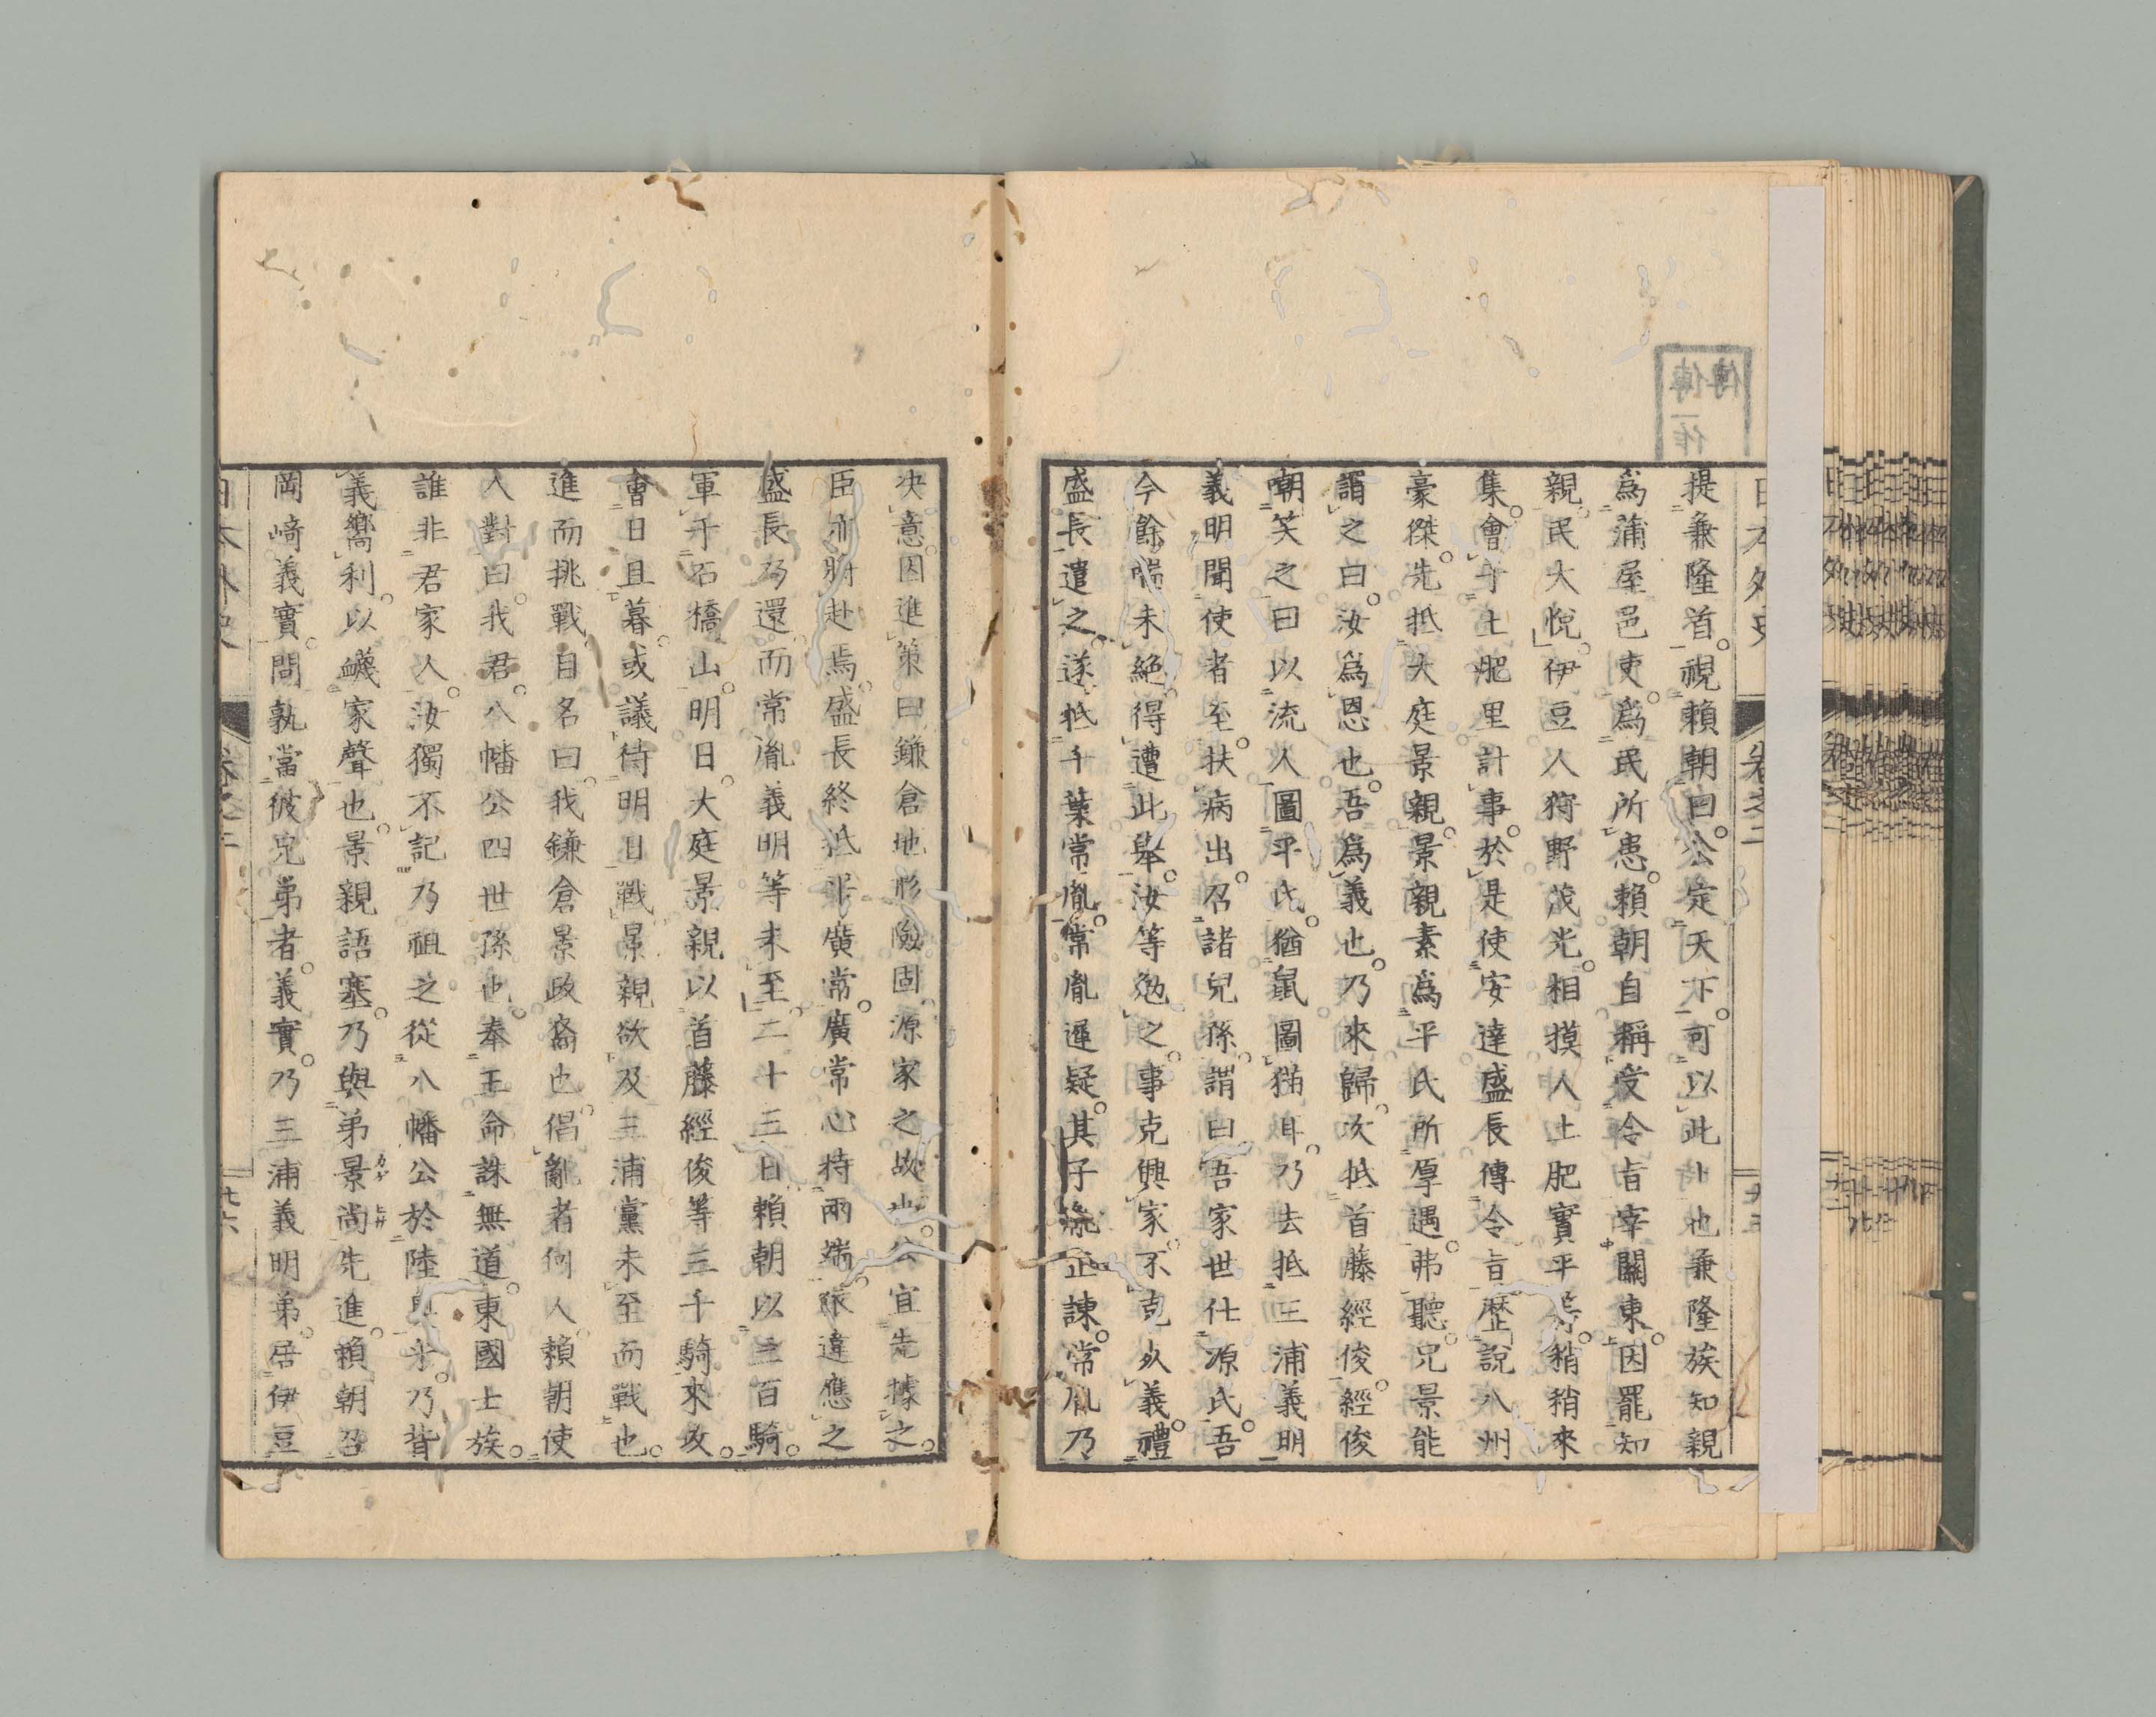 提兼隆首。視賴朝曰。公定天下。可以此卜也兼隆族知親
爲蒲屋邑吏。爲民所患。賴朝自稱受令旨宰關東。因罷知
親。民大悅。伊豆人狩野茂光。相摸人土肥實平等。稍稍來
集。會于土肥里計事。於是使安達盛長傳令旨。歷說八州
豪傑。先抵大庭景親。景親素爲平氏所厚遇。弗聽。兄景能
謂之曰。汝爲恩也。吾爲義也。乃來歸。次抵首藤經俊。經俊
嘲笑之曰以流人圖平氏。猶鼠圖猫耳。乃去抵三浦義明
義明聞使者至。扶病出。召諸兒孫。謂曰吾家世仕源氏。吾
今餘喘未絕。得遭此擧。汝等勉之。事克興家。不克从義。禮
盛長遣之。遂抵千葉常胤。常胤遲疑。其子胤正諫。常胤乃
決意。因進策曰鎌倉地形險固。源家之故也。公宜先據之。
臣亦將赴焉。盛長終抵平廣常。廣常心持兩端。依違應之
盛長乃還而常胤義明等未至。二十三日賴朝以三百騎。
軍于石橋山。明日。大庭景親以首藤經俊等三千騎來攻。
會日且暮。或議待明日戰。景親欲及三浦黨未至而戰也。
進而挑戰。自名曰。我鎌倉景政裔也。倡亂者何人。賴朝使
人對曰。我君。八幡公四世孫也。奉王命誅無道。東國士族。
誰非君家人。汝獨不記乃祖之從八幡公於陸奧乎。乃背
義嚮利。以衊家聲也。景親語塞。乃與弟景尚先進。賴朝召
岡﨑義實。問孰當彼兄弟者。義實。乃三浦義明弟。居伊豆